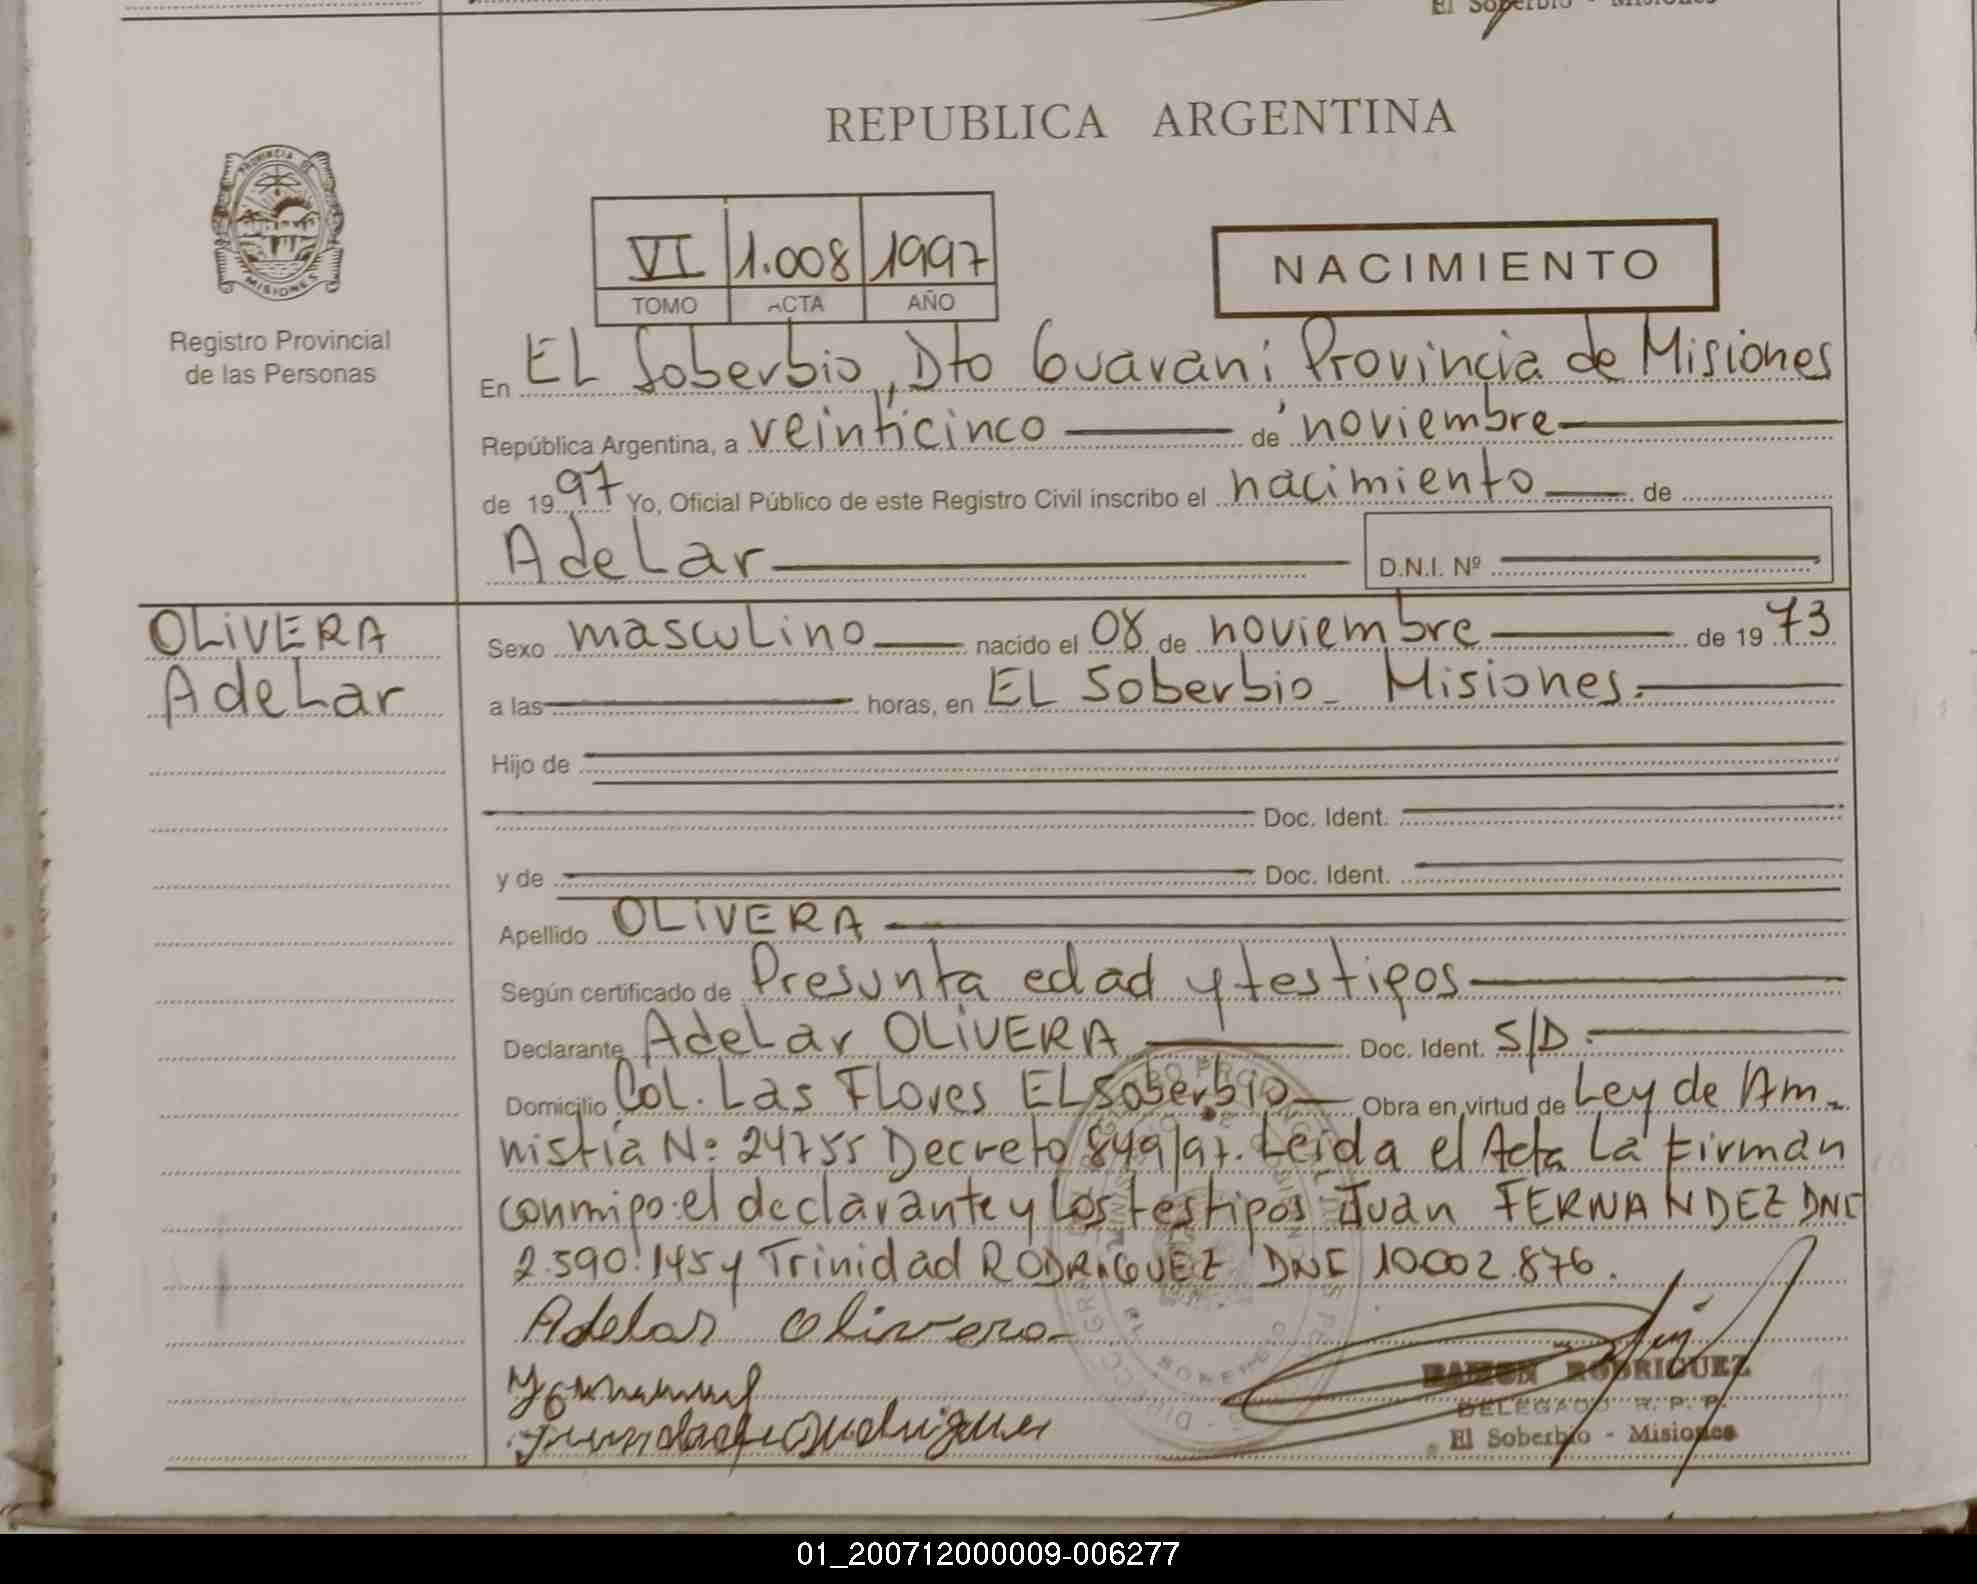 El Soberbio - Misiones
REPUBLICA ARGENTINA
PROVINCIA DE
MISIONES
Registro Provincial
de las Personas
VI 1.008 1997
TOMO ACTA AÑO
NACIMIENTO
En EL Soberbio, Dto Guarani Provincia de Misiones
República Argentina, a veinticinco de noviembre
de 1997 Yo, Oficial Público de este Registro Civil inscribo el nacimiento de
Adelar D.N.I. Nº
OLIVERA
Adelar
Sexo masculino nacido el 08 de noviembre de 1973
a las horas, en EL Soberbio - Misiones.
Hijo de
Doc. Ident.
y de Doc. Ident.
Apellido OLIVERA
Según certificado de Presunta edad y testigos
Declarante Adelar OLIVERA Doc. Ident. S/D.
Domicilio Col. Las Flores EL Soberbio Obra en virtud de Ley de Am-
nistia Nº 24755 Decreto 849/97. Leida el Acta La firman
conmigo: el declarante y Los testigos Juan FERNANDEZ DNI
2.590.145 y Trinidad RODRIGUEZ DNI 10.002.876.
Adelar Olivera
RAMON RODRIGUEZ
DELEGADO R. P. P.
El Soberbio - Misiones
01_200712000009-006277